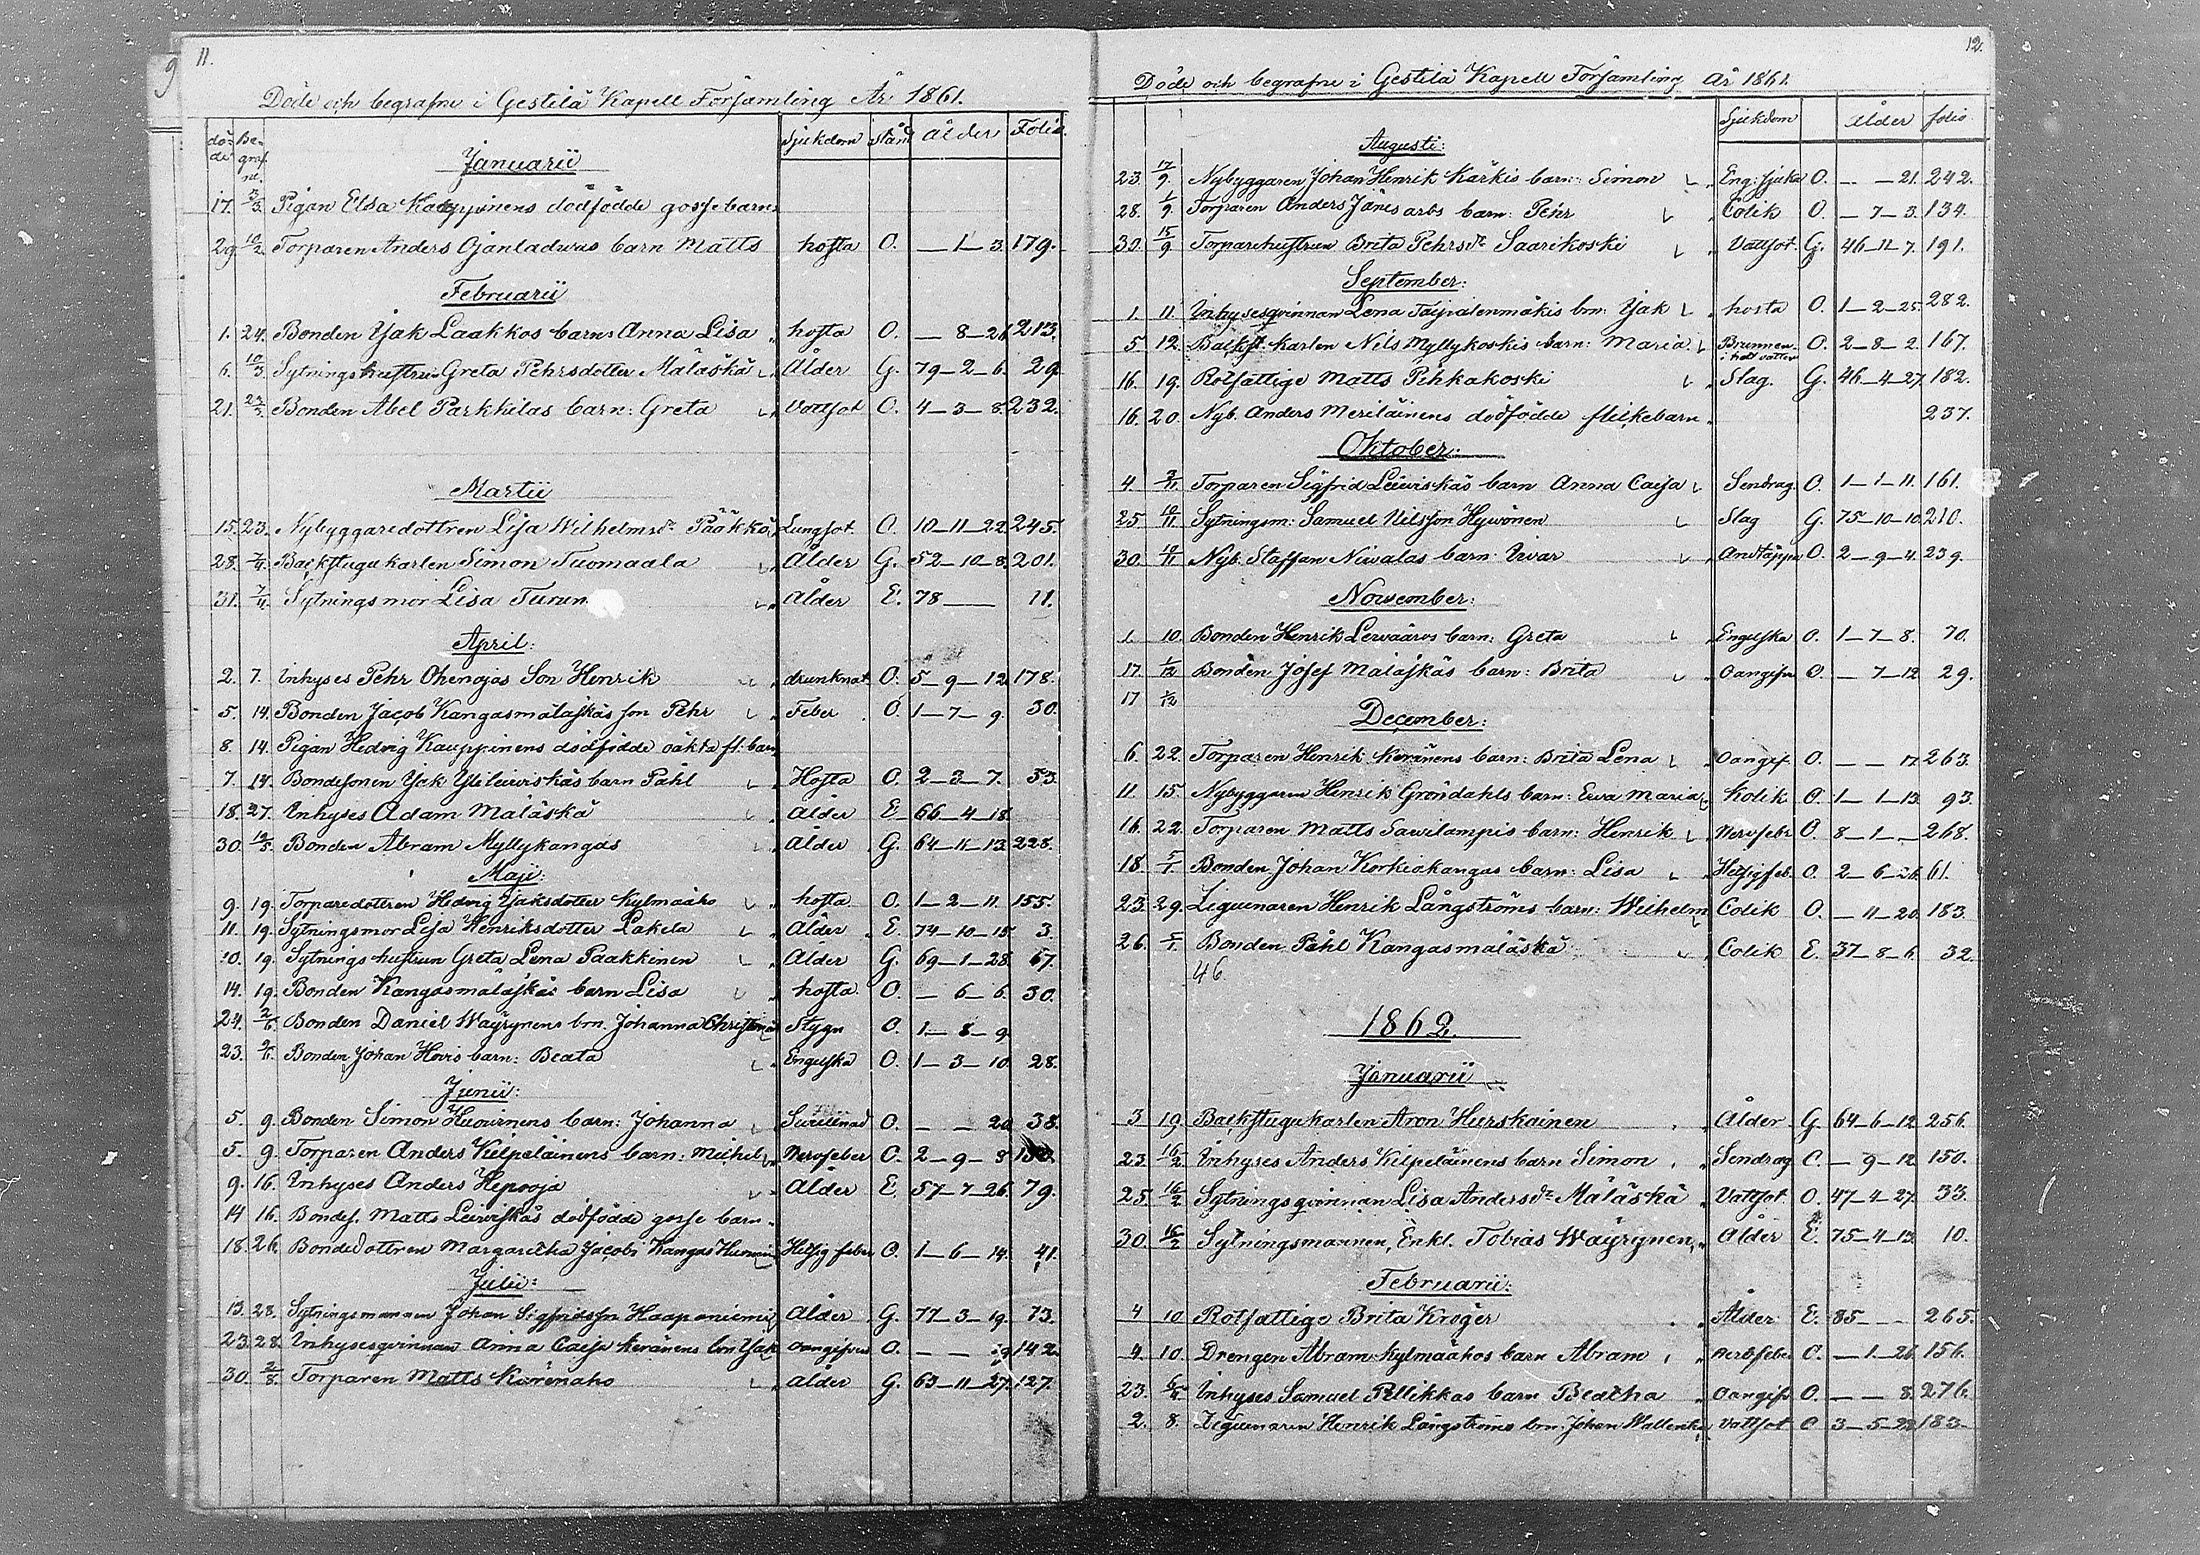 11.
Döde och begrafne i Gestilä Kapell Församling År 1861.
döde begrafne. Sjukdom stånd ålder Folio.
Januarii
17. 3/3. Pigan Elsa Kauppinens dödfödde gossebarn
29. 10/2. Torparen Anders Ojanladwas barn Matts hosta O. — 1 — 3. 179.
Februarii
1. 24. Bonden Isak Laakkos barn: Anna Lisa hosta O. — 8 — 26. 213.
6. 10/3. Sytningshustrun Greta Pehrsdotter Mäläskä Ålder G. 79 — 2 — 6. 29
21. Bonden Abel Parkkilas barn: Greta Vattsot O. 4 — 3 — 8. 232.
Martii
15. 23. Nybyggaredottren Lisa Wilhelmsdr Pääkkö Lungsot O. 10 — 11 — 22. 245.
28. 7/4. Backstugukarlen Simon Tuomaala Ålder G. 52 — 10 — 8. 201.
31. 7/4. Sytningsmor Lisa Turun Ålder E. 78 — 11.
April:
2. 7. Inhyses Pehr Ohenojas Son Henrik drunknat O. 5 — 9 — 12 178.
5. 14. Bonden Jacob Kangasmäläskäs son Pehr Feber O. 1 — 7 — 9. 30.
8. 14. Pigan Hedvig Kauppinens dödfödde oäkta fl: barn
7. 14. Bondesonen Isak Ylileiwiskäs barn Påhl Hosta O. 2 — 3 — 7. 53.
18. 27. Inhyses Adam Mäläskä ålder E. 66 — 4 — 18
30. 12/5. Bonden Abram Myllykangas ålder G. 64 — 11 — 13. 228.
Maji:
9. 19. Torparedottren Hedvig Isaksdotter Kylmäaho hosta O. 1 — 2 — 11. 155.
11. 19. Sytningsmor Lisa Henriksdotter Lakela Ålder E. 74 — 10 — 15 3.
10. 19. Sytningshustrun Greta Lena Paakkinen Ålder G. 69 — 1 — 28. 67.
14. 19. Bonden Kangasmäläskäs barn Lisa hosta O. — 6 — 6. 30.
24. 2/6. Bonden Daniel Wäyrynens brn. Johanna Christina Stygn O. 1 — 8 — 9
23. 2/6. Bonden Johan Hovis barn: Beata Engelska O. 1 — 3 — 10. 28.
Junii:
5. 9. Bonden Simon Huovinens barn: Johanna O. — — 20. 38.
5. 9. Torparen Anders Kilpeläinens barn: Michel Nervfeber O. 2 — 9 — 8 150.
9. 16. Inhyses Anders Hepooja Ålder E. 57 — 7 — 26. 79.
14 16. Bondes. Matts Leiviskäs dödfödde gosse barn.
18. 26. Bondedottren Margaretha Jacobs Kangas Hetsig feber O. 1 — 6 — 14. 41.
Julii:
13. 28. Sytningsmannen Johan Sigfridsson Haaponiemi Ålder G. 77 — 3 — 19. 73.
23. 28. Inhysesqvinnan Anna Caisa Keränens brn Isak oangifven O. — — 142.
30. 2/8. Torparen Matts Kärenaho ålder G. 63 — 11 — 27. 127.
12.
Döde och begrafne i Gestilä Kapell Församling år 1861.
Sjukdom Ålder folio
Augusti:
23. 17/9. Nybyggaren Johan Henrik Kärkis barn: Simon Eng: sjuka O. — — 21. 242.
28. 1/9. Torparen Anders barn: Pehr Colik O. — 7 — 3. 134.
30. 15/9. Torparehustrun Brita Pehrsdr Saarikoski Vattsot. G. 46 — 11 — 7. 191.
September:
1. 11. Inhysesqvinnan Lena Taipalenmäkis brn: Isak hosta O. 1 — 2 — 25. 282.
5. 12. Backst. karlen Nils Myllykoskis barn: Maria Brunnen i hett vatten O. 2 — 8 — 2. 167.
16. 19. Rotfattige Matts Pihkakoski Slag. G. 46 — 4 — 27. 182.
16. 20. Nyb. Anders Meriläinens dödfödde flickebarn 237.
Oktober:
4. 3/11. Torparen Sigfrid Leiwiskäs barn Anna Caisa Sendrag O. 1 — 1 — 11. 161.
25. 10/11. Sytningsm: Samuel Nilsson Hywönen Slag G. 75 — 10 — 10. 210.
30. 10/11. Nyb. Staffan Niwalas barn: Ivar Andtäppa O. 2 — 9 — 4. 239.
November:
1. 10. Bonden Henrik barn: Greta Engelska O. 1 — 7 — 8. 70.
17. 1/12 Bonden Josef Mäläskäs barn: Brita oangifn O. — 7 — 12 29.
17 1/12
December:
6. 22. Torparen Henrik Keränens barn: Brita Lena Oangif. O. — — 17 263.
11. 15. Nybyggaren Henrik Gröndahls barn: Ewa Maria Kolik O. 1 — 1 — 13. 93.
16. 22. Torparen Matts Sawilampis barn: Henrik Nervfebr O. 8 — 1 — 268.
18. 5/1. Bonden Johan Korkiakangas barn: Lisa Hetsigfeb. O. 2 — 6 — 26. 61.
23. 29. Ziguenaren Henrik Långströms barn: Wilhelm Colik O. — 11 — 20. 183.
26. 5/1. Bonden Påhl Kangasmäläskä Colik E. 37 — 8 — 6 32.
46
1862.
Januarii
3 19. Backstugukarlen Aron Hurskainen Ålder G. 64 — 6 — 12 256.
23. 16/2 Inhyses Anders Kilpeläinens barn Simon Sendrag O. — 9 — 12 150.
25. 16/2 Sytningsqvinnan Lisa Andersdr Mäläskä Vattsot. O. 47 — 4 — 27. 33.
30. 16/2 Sytningsmannen, Enkl. Tobias Wäyrynen Ålder E. 75 — 4 — 13. 10.
Februarii:
4 10 Rotfattige Brita Kröger Ålder E. 85 — — 265.
4. 10. Drengen Abram Kylmäähos barn Abram nervfebr O. — 1 — 26. 156.
23. Inhyses Samuel Pellikkas barn Beatha oangifv O. — — 8. 276.
2. 8. Ziguenaren Henrik Långströms brn. Johan Vattsot O 3 — 5 — 22 183.